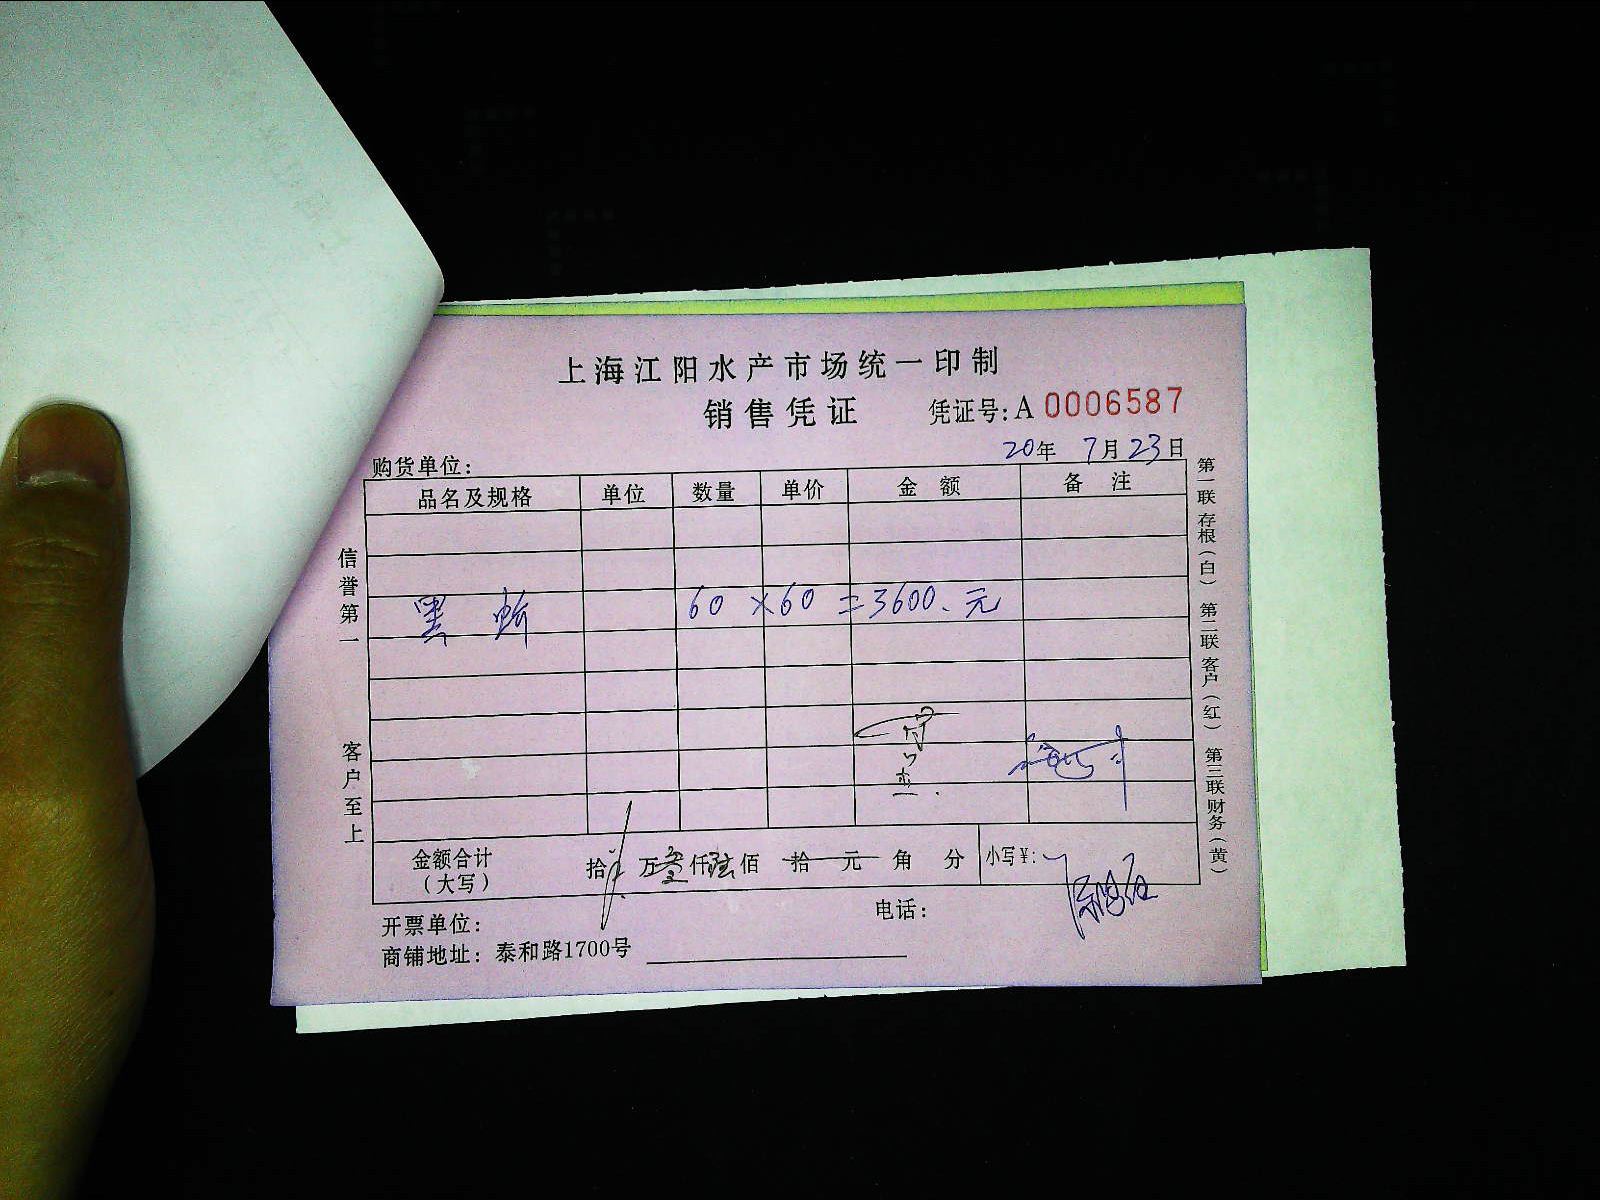 上海江阳水产市场统一印制
销售凭证 凭证号:A 0006587
20年 7月23日
购货单位:
品名及规格 单位 数量 单价 金额 备注
黑 60 × 60 = 3600.元
金额合计(大写) 拾 万叁仟陆佰 拾 元 角 分 小写¥:
开票单位: 电话:
商铺地址: 泰和路1700号
信誉第一
客户至上
第一联存根(白) 第二联客户(红) 第三联财务(黄)